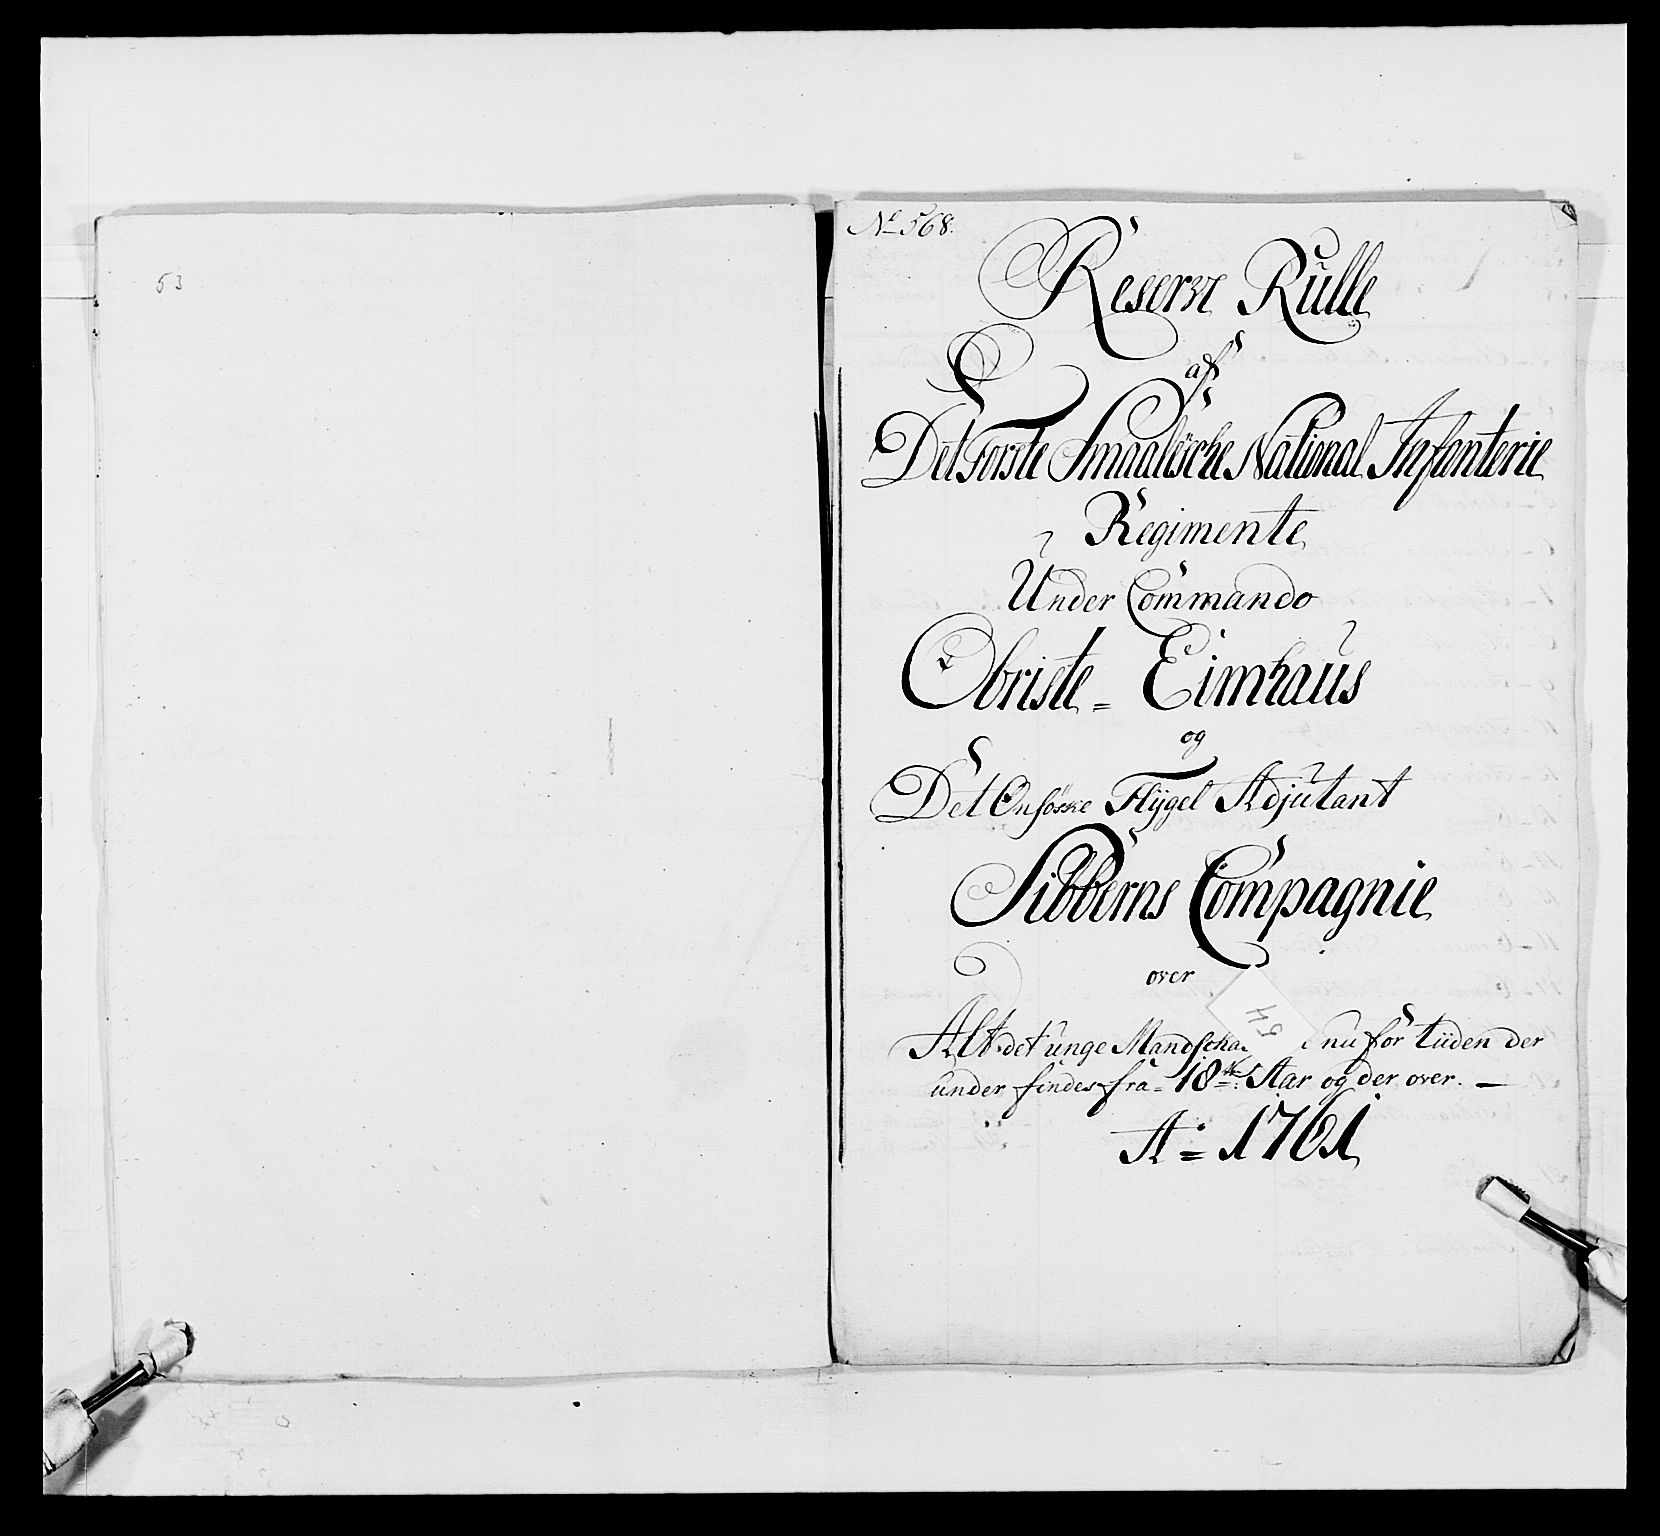 53
No 568.
Reserve Rulle
af
Det Første Smaalehsche National Infanterie
Regimente
Under Commando
Obriste = Eimhaus
og
Det Onsøske Flÿgel Adjutant
Sibberns Compagnie
over
54
Alt det unge Mandska nu for tiiden der
under findes fra = 18de Aar og der over. —
Ao = 1761